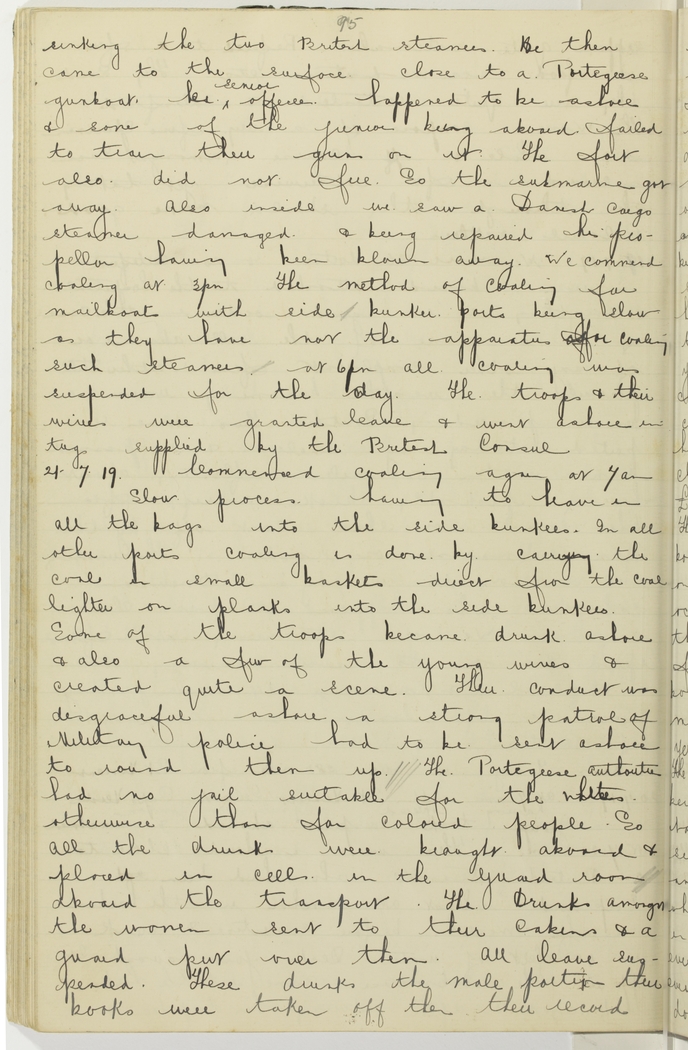 95
sinking the two British steamers. He then
came to the surface close to a Portegeese
gunboat. her senior officer happened to be ashore
& some of the junior being aboard failed
to train their guns on it. The fort
also did not fire. So the submarine got
away. Also inside we saw a Danish cargo
steamer damaged & being repaired his pro-
pellor having been blown away. We commend
coaling at 3pm The method of coaling for
mailboats with side bunker ports being slow
as they have not the apparatus for coaling
such steamers. at 6pm all coaling was
suspended for the day. The troops & their
wives were granted leave & went ashore in
tug supplied by the British Consul
21-7-19. Commensed coaling again at 7am
Slow process having to heave in
all the bags into the side bunkers. In all
other ports coaling is done by carrying the
coal in small baskets direct from the coal
lighter on planks into the side bunkers.
Some of the troops became drunk ashore
& also a few of the young wives &
created quite a scene. Their conduct was
disgraceful ashore a strong patrol of
Military police had to be sent ashore
to round them up. The Portegeese authorities
had no jail suitable for the whites.
otherwise than for colored people. So
all the drunks were brought aboard &
placed in cells in the guard room
aboard the transport. The Drunks amongst
the women sent to their cabins & a
guard put over them. All leave sus-
pended. These drunks the male portion their
books were taken off them their record